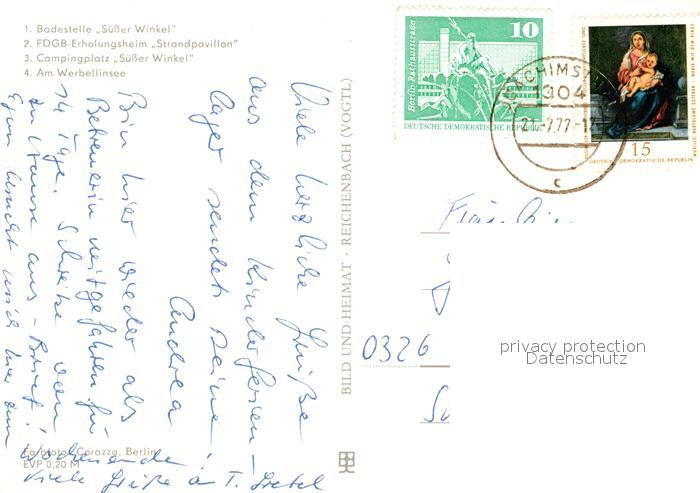 1. Badestelle „Süßer Winkel"
2. FDGB-Erholungsheim „Strandpavillon"
3. Campingplatz „Süßer Winkel"
4. Am Werbellinsee
Viele herzliche Grüße
aus dem Kinderferien-
lager sendet Deine
Andrea!
Bin hier wieder als
Betreuerin mitgefahren für
14 Tage. Schreibe von
zu Hause aus - Brief!
Egon besucht mich hier am
Wochenende
Viele Grüße an T. Gretel
Farbfotos: Corazza, Berlin
EVP 0,20 M
BILD UND HEIMAT · REICHENBACH (VOGTL)
Berlin-Rathausstraße
10
DEUTSCHE DEMOKRATISCHE REPUBLIK
15
DEUTSCHE DEMOKRATISCHE REPUBLIK
1304
c
0326
privacy protection
Datenschutz